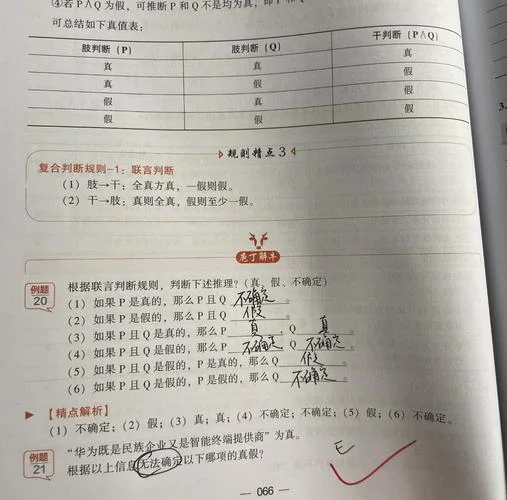 ④若 P∧Q 为假，可推断 P 和 Q 不是均为真，即 P 和 Q
可总结如下真值表：
肢判断（P） 肢判断（Q） 干判断（P∧Q）
真 真 真
真 假 假
假 真 假
假 假 假
规则精点 3
复合判断规则-1：联言判断
（1）肢→干：全真方真，一假则假。
（2）干→肢：真则全真，假则至少一假。
庖丁解牛
例题 20 根据联言判断规则，判断下述推理？（真、假、不确定）
（1）如果 P 是真的，那么 P 且 Q 不确定 。
（2）如果 P 是假的，那么 P 且 Q 假 。
（3）如果 P 且 Q 是真的，那么 P 真 ，Q 真 。
（4）如果 P 且 Q 是假的，那么 P 不确定 Q 不确定 。
（5）如果 P 且 Q 是假的，P 是真的，那么 Q 假 。
（6）如果 P 且 Q 是假的，P 是假的，那么 Q 不确定 。
【精点解析】
（1）不确定；（2）假；（3）真；真；（4）不确定；不确定；（5）假；（6）不确定。
例题 21 “华为既是民族企业又是智能终端提供商”为真。
根据以上信息无法确定以下哪项的真假？
E
066
3.